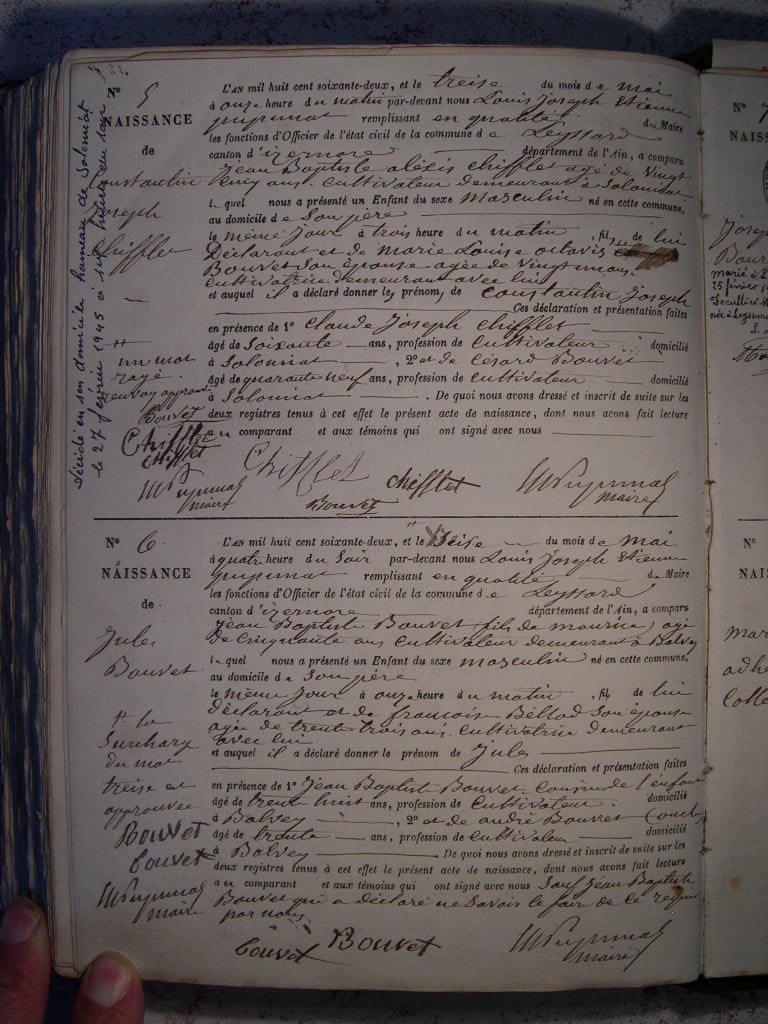 N° 5
NAISSANCE
de
Constantin
Joseph
Chifflet
L'AN mil huit cent soixante-deux, et le treise du mois de mai
à onze heure du matin par-devant nous Louis Joseph Etienne
puyumat remplissant en qualité de Maire
les fonctions d'Officier de l'état civil de la commune de Leyssard
canton d'izernore département de l'Ain, a comparu
Jean Baptiste alexis chifflet agé de vingt
cinq ans. cultivateur demeurant à Solomiat
lequel nous a présenté un Enfant du sexe masculin né en cette commune,
au domicile de Son père
le même jour à trois heure du matin, fils de lui
Déclarant et de marie Louise octavie
Bouvet Son épouse agée de vingt
cultivatrice demeurant avec lui
et auquel il a déclaré donner les prénom, de Constantin Joseph
Ces déclaration et présentation faites
en présence de 1° Claude Joseph chifflet
âgé de Soixante ans, profession de cultivateur domicilié
à Solomiat, 2° et de Césard Bouvet
âgé de quarante neuf ans, profession de cultivateur domicilié
à Solomiat. De quoi nous avons dressé et inscrit de suite sur les
deux registres tenus à cet effet le présent acte de naissance, dont nous avons fait lecture
au comparant et aux témoins qui ont signé avec nous
un mot
rayé.
renvoy approuvé
Bouvet
Chifflet
chifflet
maire
Chifflet
Bouvet
chifflet
maire
Décédé en son domicile hameau de Solomiat
le 27 février 1945 à
N° 6
NAISSANCE
de
Jules
Bouvet
L'AN mil huit cent soixante-deux, et le treise du mois de mai
à quatre heure du Soir par-devant nous Louis Joseph Etienne
puyumat remplissant en qualité de Maire
les fonctions d'Officier de l'état civil de la commune de Leyssard
canton d'izernore département de l'Ain, a comparu
Jean Baptiste Bouvet (fils de maurice) agé
de cinquante ans cultivateur demeurant à Balvay
lequel nous a présenté un Enfant du sexe masculin né en cette commune,
au domicile de Son père
le même jour à onze heure du matin, fils de lui
déclarant et de françoise Béllod Son épouse
agée de trente trois ans. cultivatrice demeurant
avec lui
et auquel il a déclaré donner le prénom de Jules
Ces déclaration et présentation faites
en présence de 1° Jean Baptiste Bouvet cousin de l'enfant
âgé de trente huit ans, profession de cultivateur. domicilié
à Bolvey, 2° et de andré Bouvet (oncle)
âgé de trente ans, profession de cultivateur domicilié
à Bolvey. De quoi nous avons dressé et inscrit de suite sur les
deux registres tenus à cet effet le présent acte de naissance, dont nous avons fait lecture
au comparant et aux témoins qui ont signé avec nous Sauf Jean Baptiste
Bouvet qui a déclaré ne Savoir le faire de ce requis
par nous
la
Surcharge
du mot
treise est
approuvée
Bouvet
bouvet
maire
bouvet Bouvet
maire
N°
NAISS
Joseph
Bouv
marié à
25 février
née à Leyssard
N°
NAIS
mar
adh